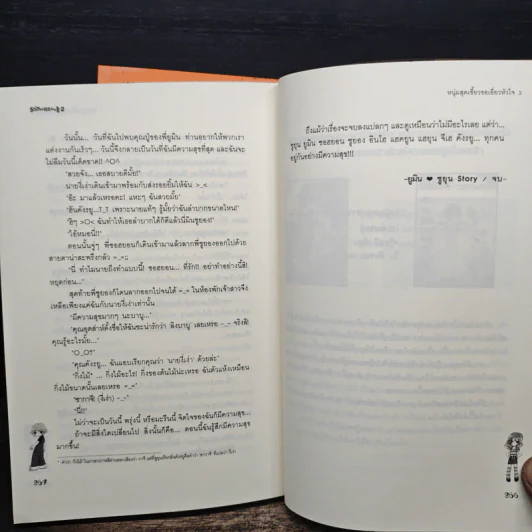 วันนั้น... วันที่ฉันไปพบคุณปู่ของพี่ยูมิน ท่านอยากให้พวกเรา
แต่งงานกันเร็วๆ... วันนี้จึงกลายเป็นวันที่ฉันมีความสุขที่สุด และฉันจะ
ไม่ลืมวันนี้เด็ดขาด!! ^O^
"สวยจัง... เธอสบายดีมั้ย!"
นายงี่เง่าเดินเข้ามาพร้อมกับส่งรอยยิ้มให้ฉัน >_<
"อ๊ะ มาแล้วเหรอคะ! แหะๆ ฉันสวยมั้ย"
"ฮันคังรยู...T_T เพราะนายแท้ๆ รู้มั้ยว่าฉันลำบากขนาดไหน!"
"ฮิๆ >O< ฉันทำให้เธอลำบากได้ก็ดีแล้วนี่มินชูยอง!"
"ไอ้หมอนี่!!"
ตอนนั้นจู่ๆ พี่ซอฮยอนก็เดินเข้ามาแล้วลากพี่ชูยองออกไปด้วย
สายตาน่าสะพรึงกลัว >_<;;
"นี่ ทำไมนายถึงทำแบบนี้! ซอฮยอน... ที่รัก!! อย่าทำอย่างนี้สิ!
หยุดก่อน..."
สุดท้ายพี่ชูยองก็โดนลากออกไปจนได้ =_= ในห้องพักเจ้าสาวจึง
เหลือเพียงแค่ฉันกับนายงี่เง่าเท่านั้น
"มีความสุขมากๆ นะบาบู..."
"คุณอุตส่าห์ตั้งชื่อให้ฉันซะน่ารักว่า 'ลิงบาบู' เลยเหรอ -_- จริงสิ!
คุณรู้อะไรมั้ย..."
"O_O?"
"คุณคังรยู... ฉันแอบเรียกคุณว่า 'นายงี่เง่า' ด้วยล่ะ"
"กิ่งไม้* ... กิ่งไม้อะไร! กิ่งของต้นไม้น่ะเหรอ ฉันตัวแห้งเหมือน
กิ่งไม้ขนาดนั้นเลยเหรอ =_="
"ซากาจี! (งี่เง่า) -_="
"นี่!!"
ไม่ว่าจะเป็นวันนี้ พรุ่งนี้ หรือมะรืนนี้ จิตใจของฉันก็มีความสุข...
ถ้าจะมีสิ่งใดเปลี่ยนไป สิ่งนั้นก็คือ... ตอนนี้ฉันรู้สึกมีความสุข
มากขึ้น!
หนุ่มสุดเซี้ยวขอเฮี้ยวหัวใจ 2
ถึงแม้ว่าเรื่องจะจบลงแปลกๆ และดูเหมือนว่าไม่มีอะไรเลย แต่ว่า...
ชูยุน ยูมิน ซอฮยอน ชูยอง อินโฮ แฮคยูน แฮยุน จีเฮ คังรยู... ทุกคน
อยู่กันอย่างมีความสุข!!!
-ยูมิน ♥ ชูยุน Story / จบ-